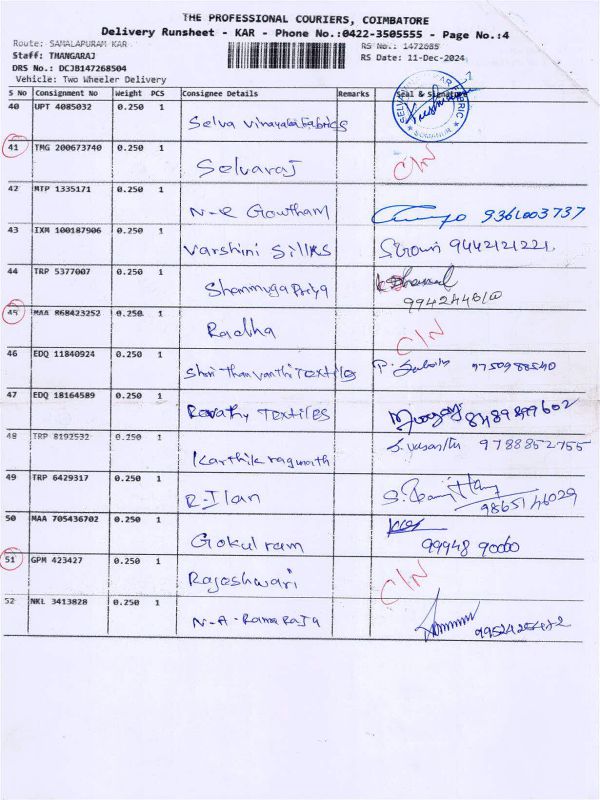 THE PROFESSIONAL COURIERS, COIMBATORE
Delivery Runsheet - KAR - Phone No.:0422-3505555 - Page No.:4
Route: SAMALAPURAM KAR RS No.: 1472685
Staff: THANGARAJ RS Date: 11-Dec-2024
DRS No.: DCJB147268504
Vehicle: Two Wheeler Delivery
S No Consignment No Weight PCS Consignee Details Remarks Seal & Signature
40 UPT 4085032 0.250 1 Selva Vinayaka Fabrics
41 TMG 200673740 0.250 1 Selvaraj C/N
42 MTP 1335171 0.250 1 N-R Gowtham 9361003737
43 IXM 100187906 0.250 1 Varshini Silks 9442121221
44 TRP 5377007 0.250 1 Shanmuga Priya
45 MAA 868423252 0.250 1 Radha C/N
46 EDQ 11840924 0.250 1 Shri Thanvanthi Textiles 9750988540
47 EDQ 18164589 0.250 1 Revathy Textiles
48 TRP 8192532 0.250 1 Karthik ragunath S. Vasantha 9788852755
49 TRP 6429317 0.250 1 R-Ilan 9865146029
50 MAA 705436702 0.250 1 Gokulram 99948 90060
51 GPM 423427 0.250 1 Rajeshwari C/N
52 NKL 3413828 0.250 1 N-A-Rama Raju